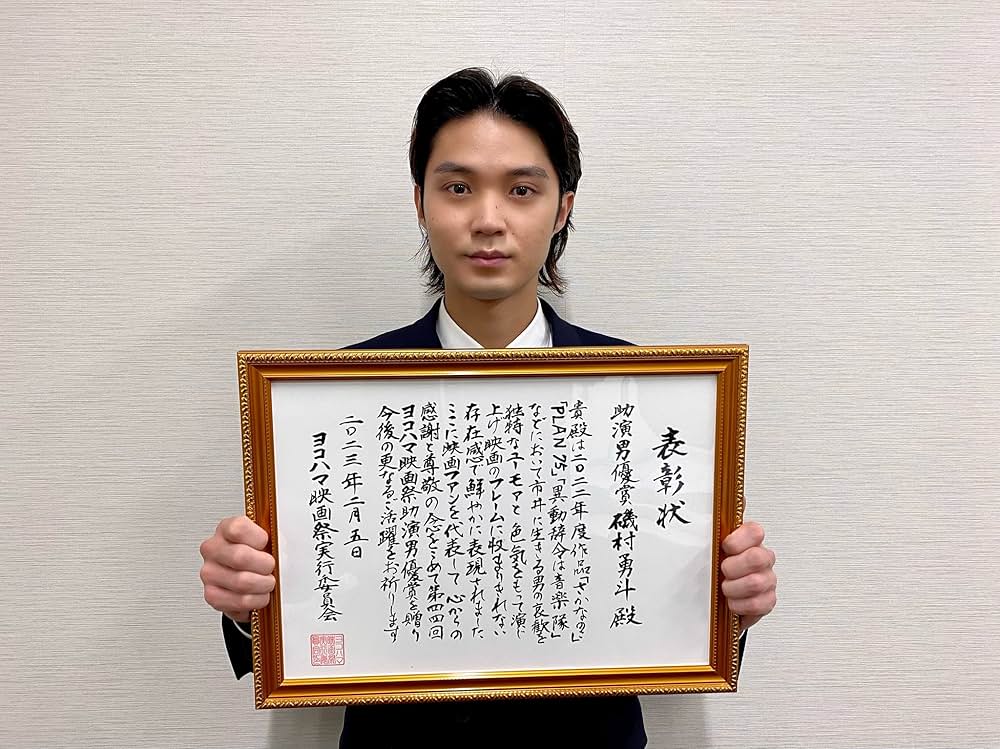 表彰状
助演男優賞 磯村勇斗 殿
貴殿は二〇二二年度作品「さかなのこ」
「PLAN 75」「異動辞令は音楽隊」
などにおいて市井に生きる男の哀歓を
独特なユーモアと色気をもって演じ
上げ映画のフレームに収まりきれない
存在感で鮮やかに表現されました
ここに映画ファンを代表して心からの
感謝と尊敬の念をこめて第四四回
ヨコハマ映画祭助演男優賞を贈り
今後の更なるご活躍をお祈りします
二〇二三年二月五日
ヨコハマ映画祭実行委員会